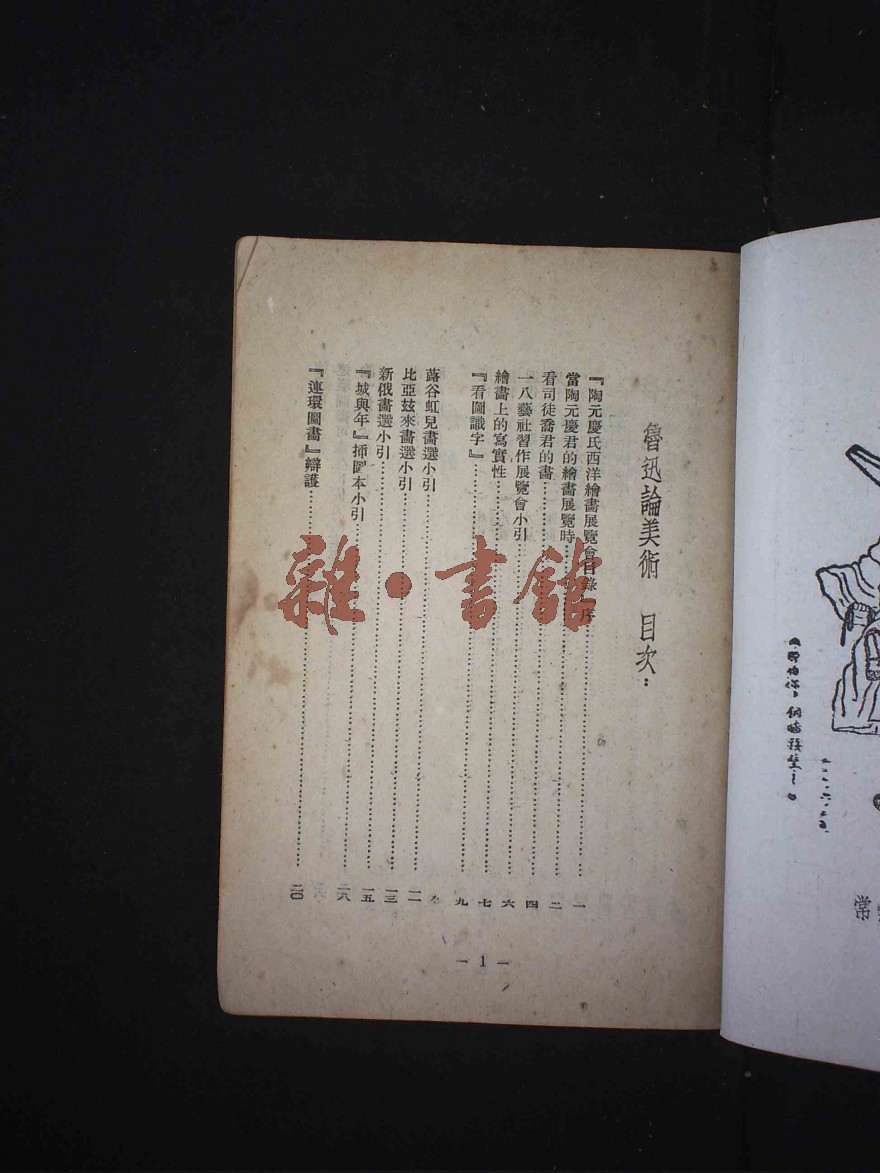 魯迅論美術　目次：
『陶元慶氏西洋繪畫展覽會目錄』序……一
當陶元慶君的繪畫展覽時……二
看司徒喬君的畫……四
一八藝社習作展覽會小引……六
繪畫上的寫實性……七
『看圖識字』……九
蕗谷虹兒畫選小引……一一
比亞玆來畫選小引……一三
新俄畫選小引……一五
『城與年』插圖本小引……一八
『連環圖畫』辯護……二〇
— 1 —
雜·書館
常